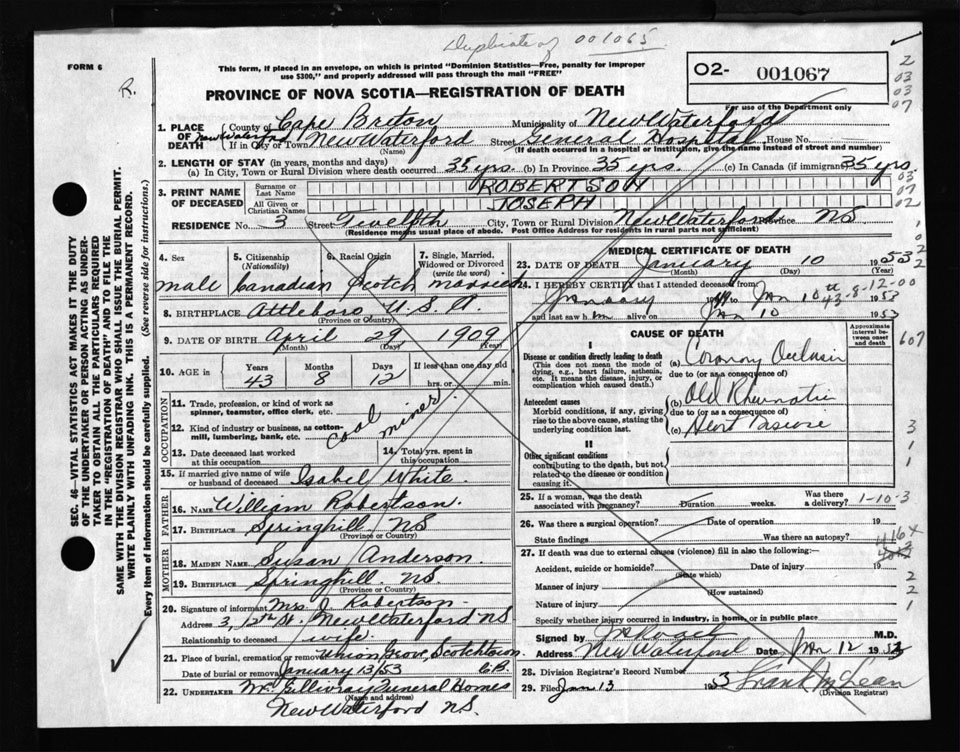 Duplicate of 001065
FORM 6
R.
This form, if placed in an envelope, on which is printed "Dominion Statistics—Free, penalty for improper
use $300," and properly addressed will pass through the mail "FREE"
02- 001067
For use of the Department only
PROVINCE OF NOVA SCOTIA—REGISTRATION OF DEATH
2
03
03
07
1. PLACE OF DEATH County of Cape Breton Municipality of New Waterford
New Waterford If in City or Town New Waterford Street General Hospital House No.
(Name) (If death occurred in a hospital or institution, give the name instead of street and number)
2. LENGTH OF STAY (in years, months and days)
(a) In City, Town or Rural Division where death occurred 35 yrs. (b) In Province 35 yrs. (c) In Canada (if immigrant) 35 yrs
3. PRINT NAME OF DECEASED
Surname or Last Name ROBERTSON
All Given or Christian Names JOSEPH
03
07
02
RESIDENCE No. 3 Street Twelfth City, Town or Rural Division New Waterford Province NS
(Residence means usual place of abode. Post Office Address for residents in rural parts not sufficient)
4. Sex
male
5. Citizenship (Nationality)
Canadian
6. Racial Origin
Scotch
7. Single, Married, Widowed or Divorced (write the word)
married
8. BIRTHPLACE Attleboro U.S.A
(Province or Country)
9. DATE OF BIRTH April 29 1909
(Month) (Day) (Year)
10. AGE in Years Months Days If less than one day old
43 8 12 hrs. or min.
OCCUPATION
11. Trade, profession, or kind of work as
spinner, teamster, office clerk, etc.
12. Kind of industry or business, as cotton-
mill, lumbering, bank, etc.
coal miner
13. Date deceased last worked
at this occupation
14. Total yrs. spent in
this occupation
15. If married give name of wife
or husband of deceased Isabel White
FATHER
16. Name William Robertson.
17. Birthplace Springhill NS
(Province or Country)
MOTHER
18. MAIDEN NAME Susan Anderson.
19. BIRTHPLACE Springhill NS.
(Province or Country)
20. Signature of informant Mrs. J. Robertson
Address 3, 12th St. New Waterford NS
Relationship to deceased wife
21. Place of burial, cremation or removal Union Grove, Scotchtown
Date of burial or removal January 13/53 CB.
22. UNDERTAKER McGillivray Funeral Homes
(Name and address)
New Waterford NS.
MEDICAL CERTIFICATE OF DEATH
23. DATE OF DEATH January 10 1953
(Month) (Day) (Year)
24. I HEREBY CERTIFY that I attended deceased from
January to Jan 10th 1953
43-8-12-00
and last saw him alive on Jan 10 1953
CAUSE OF DEATH
Approximate interval between onset and death
I
Disease or condition directly leading to death
(This does not mean the mode of
dying, e.g., heart failure, asthenia,
etc. It means the disease, injury, or
complication which caused death.)
(a) Coronary Occlusion
due to (or as a consequence of)
607
Antecedent causes
Morbid conditions, if any, giving
rise to the above cause, stating the
underlying condition last.
(b) Old Rheumatic
due to (or as a consequence of)
(c) Heart Disease
II
Other significant conditions
contributing to the death, but not
related to the disease or condition
causing it.
3
1
1
25. If a woman, was the death
associated with pregnancy? Duration weeks. Was there a delivery?
1-10-3
26. Was there a surgical operation? Date of operation 19
State findings Was there an autopsy?
416x
27. If death was due to external causes (violence) fill in also the following:—
Accident, suicide or homicide? Date of injury 19
(State which)
Manner of injury
(How sustained)
Nature of injury
Specify whether injury occurred in industry, in home, or in public place
2
2
1
Signed by M.D.
Address New Waterford Date Jan 12 1953
28. Division Registrar's Record Number
29. Filed Jan 13 1953 Frank McLean
(Division Registrar)
SEC. 46—VITAL STATISTICS ACT MAKES IT THE DUTY
OF THE UNDERTAKER OR PERSON ACTING AS UNDER-
TAKER TO OBTAIN ALL THE PARTICULARS REQUIRED
IN THE "REGISTRATION OF DEATH" AND TO FILE THE
SAME WITH THE DIVISION REGISTRAR WHO SHALL ISSUE THE BURIAL PERMIT.
WRITE PLAINLY WITH UNFADING INK. THIS IS A PERMANENT RECORD.
Every item of information should be carefully supplied. (See reverse side for instructions.)